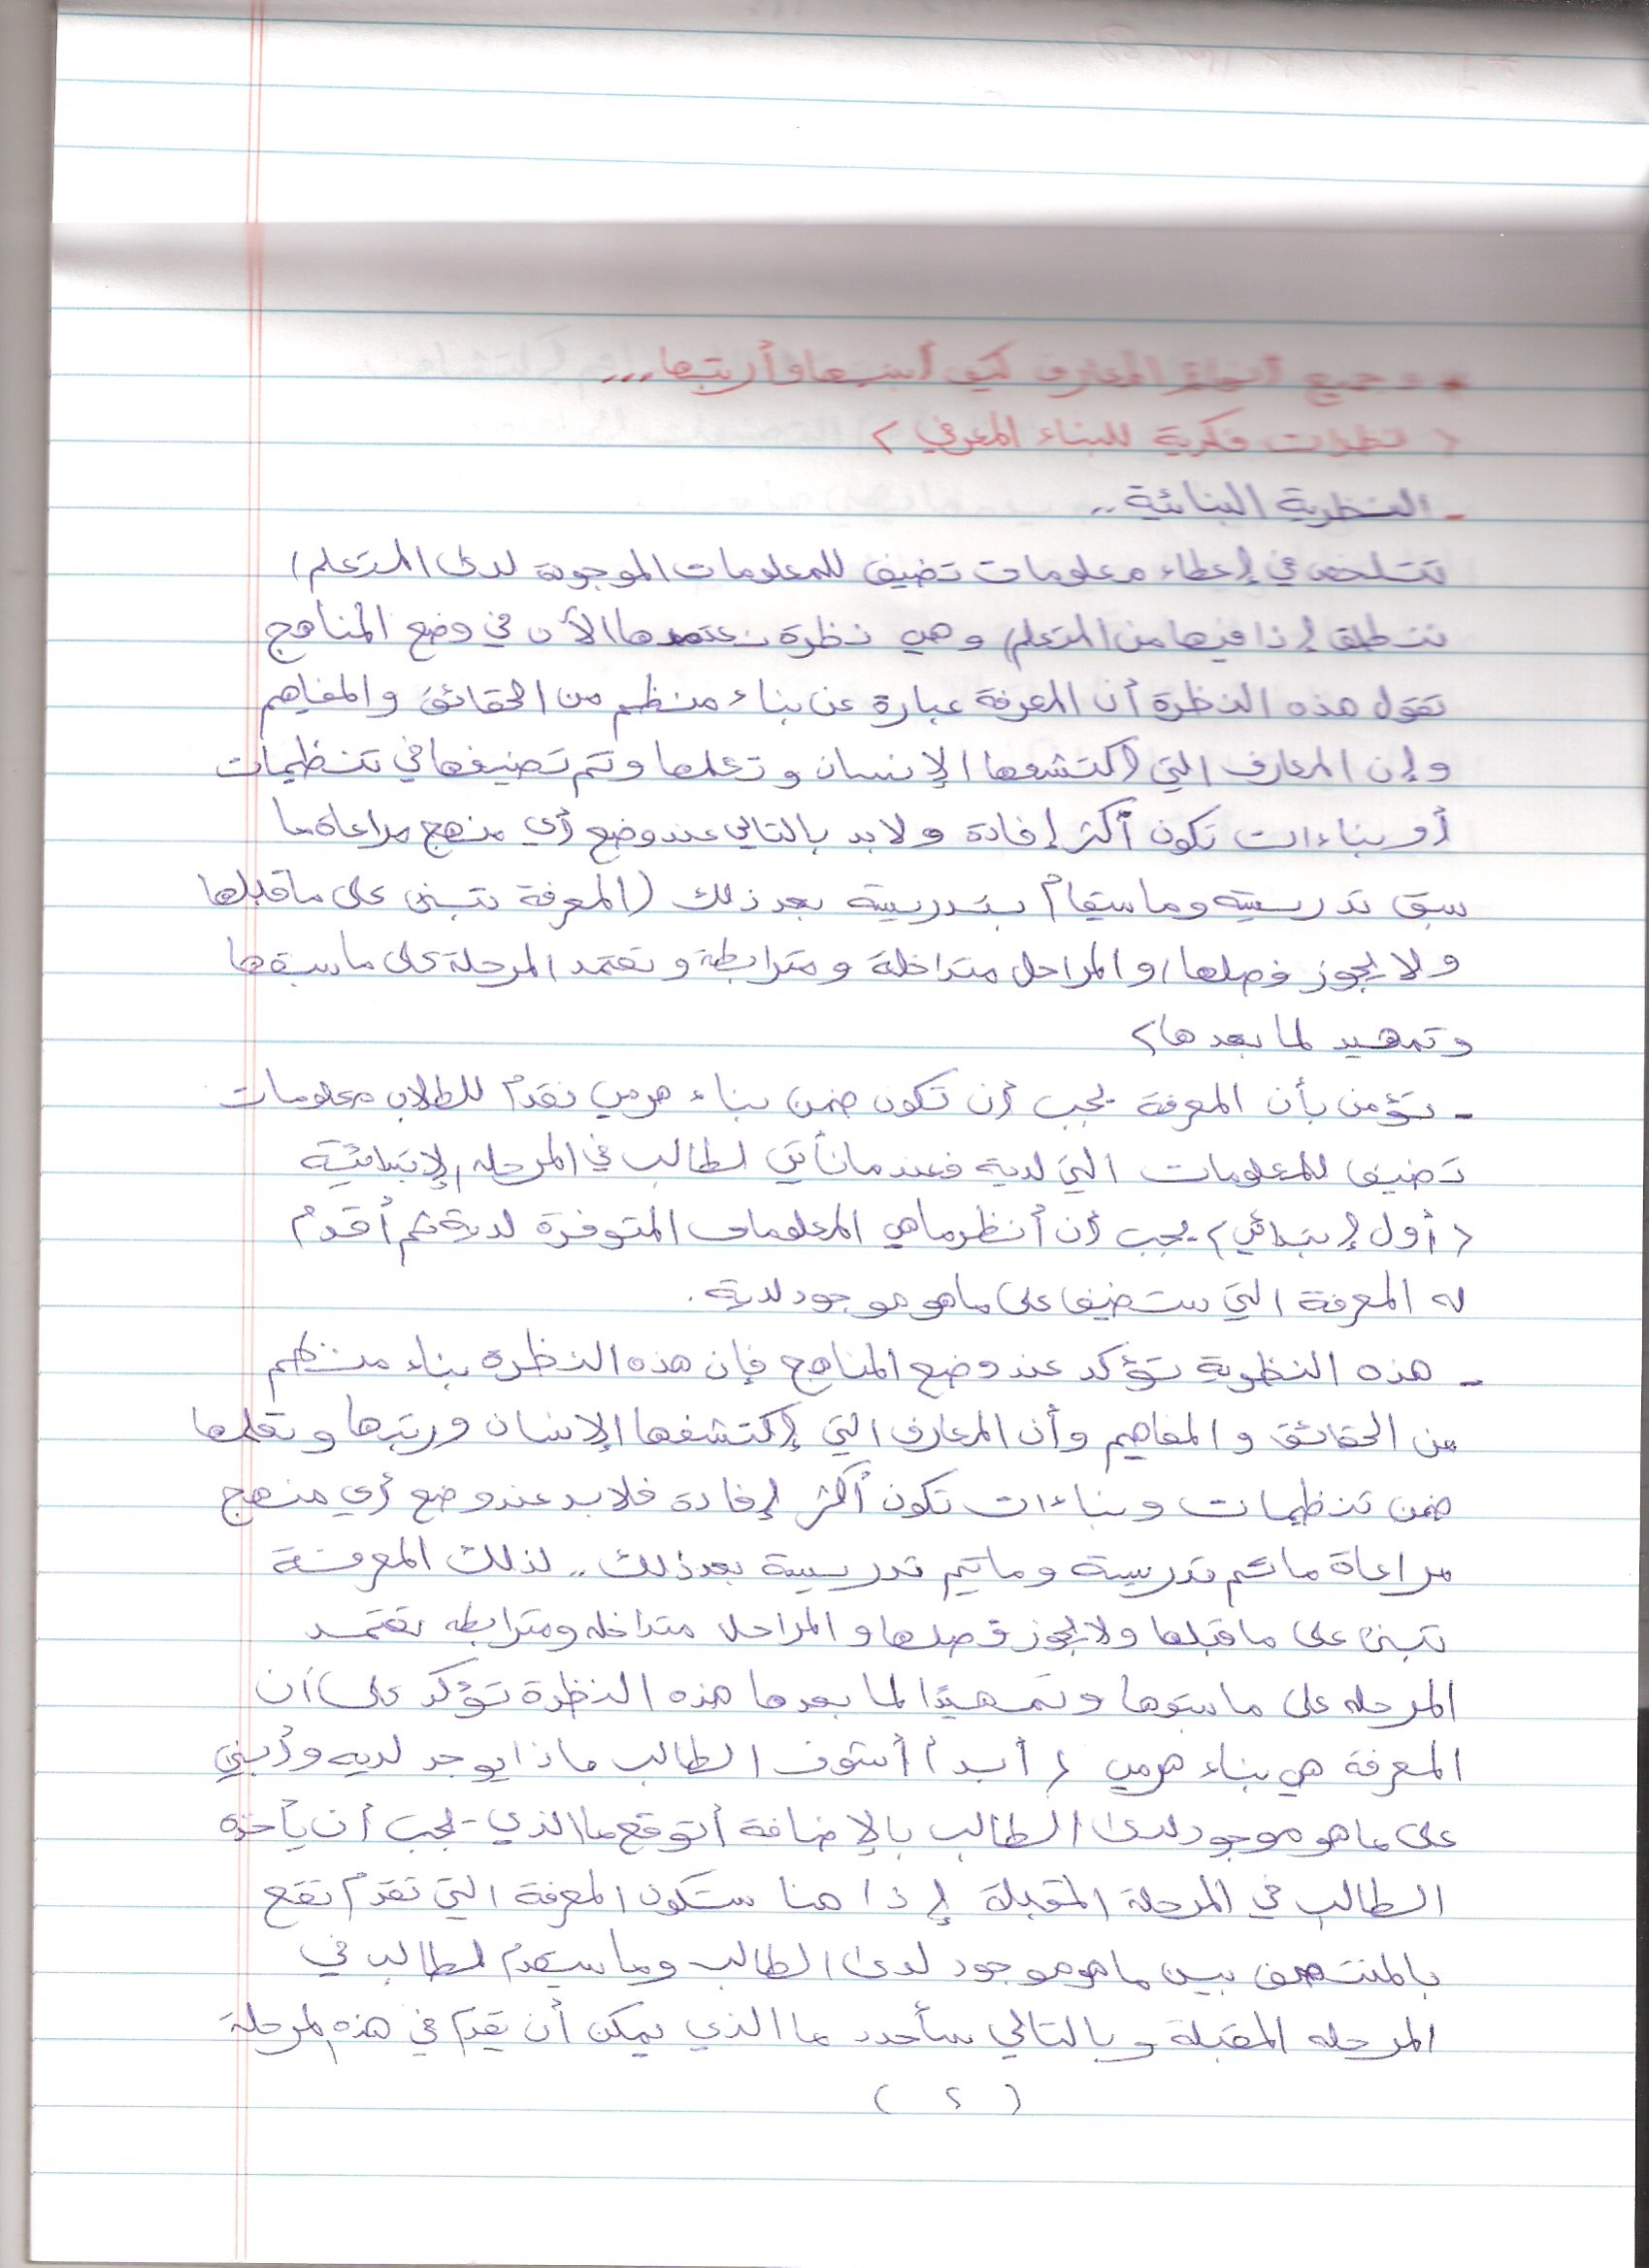 * وجميع أنماط المعارف كيف أبنيها وأرتبها...
< نظرات فكرية للبناء المعرفي >
- النظرية البنائية ..
تتلخص في إعطاء معلومات تضيف للمعلومات الموجودة لدى المتعلم)
ننطلق إذا فيها من المتعلم) وهي نظرة نعتمدها الأن في وضع المناهج
تقول هذه النظرة أن المعرفة عبارة عن بناء منظم من الحقائق والمفاهيم
وإن المعارف التي إكتشفها الإنسان وتعلمها وتم تصنيفها في تنظيمات
أو بناءات تكون أكثر إفادة ولابد بالتالي عند وضع أي منهج مراعاة ما
سبق تدريسية وما سيقام بتدريسية بعد ذلك (المعرفة تبنى على ماقبلها
ولا يجوز فصلها) والمراحل متداخلة ومترابطة وتعتمد المرحلة على ماسبقها
وتمهيد لما بعدها>
- تؤمن بأن المعرفة يجب أن تكون ضمن بناء هرمي نقدم للطلاب معلومات
تضيف للمعلومات التي لدية فعندما نأتي لطالب في المرحله الإبتدائية
< أول إبتدائي> يجب أن أنظر ماهي المعلومات المتوفرة لدية ثم أقدم
له المعرفة التي ستضيف على ماهو موجود لدية.
- هذه النظرية تؤكد عند وضع المناهج فإن هذه النظرة بناء منظم
من الحقائق والمفاهيم وأن المعارف التي إكتشفها الإنسان ورتبها وتعلمها
ضمن تنظيمات وبناءات تكون أكثر إفادة فلابد عند وضع أي منهج
مراعاة ماتم تدريسة وما يتم تدريسية بعد ذلك .. لذلك المعرفة
تبنى على ماقبلها ولا يجوز فصلها والمراحل متداخله ومترابطه تعتمد
المرحله على ماسبقها وتمهيدًا لما بعدها هذه النظرة تؤكد على أن
المعرفة هي بناء هرمي ( أبدأ أشوف الطالب ماذا يوجد لديه وأبني
على ماهو موجود لدى الطالب بالإضافة أتوقع ما الذي يجب أن يأخذه
الطالب في المرحلة المقبلة إذا هنا ستكون المعرفة التي تقدم تقع
بالمنتصف بين ماهو موجود لدى الطالب وما سيقدم لطالب في
المرحله المقبلة وبالتالي سأحدد ما الذي يمكن أن يقدم في هذه المرحلة
( ٢ )